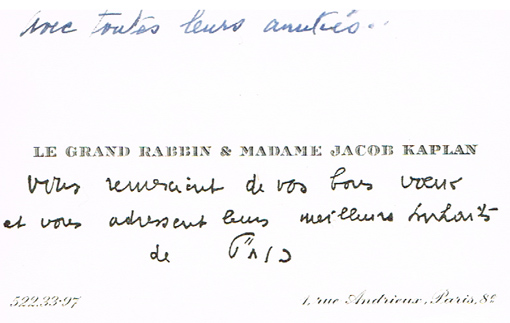 Avec toutes leurs amitiés..
LE GRAND RABBIN & MADAME JACOB KAPLAN
vous remercient de vos bons vœux
et vous adressent leurs meilleurs souhaits
de כוח"ט
522.33-97 1, rue Andrieux, Paris, 8ᵉ